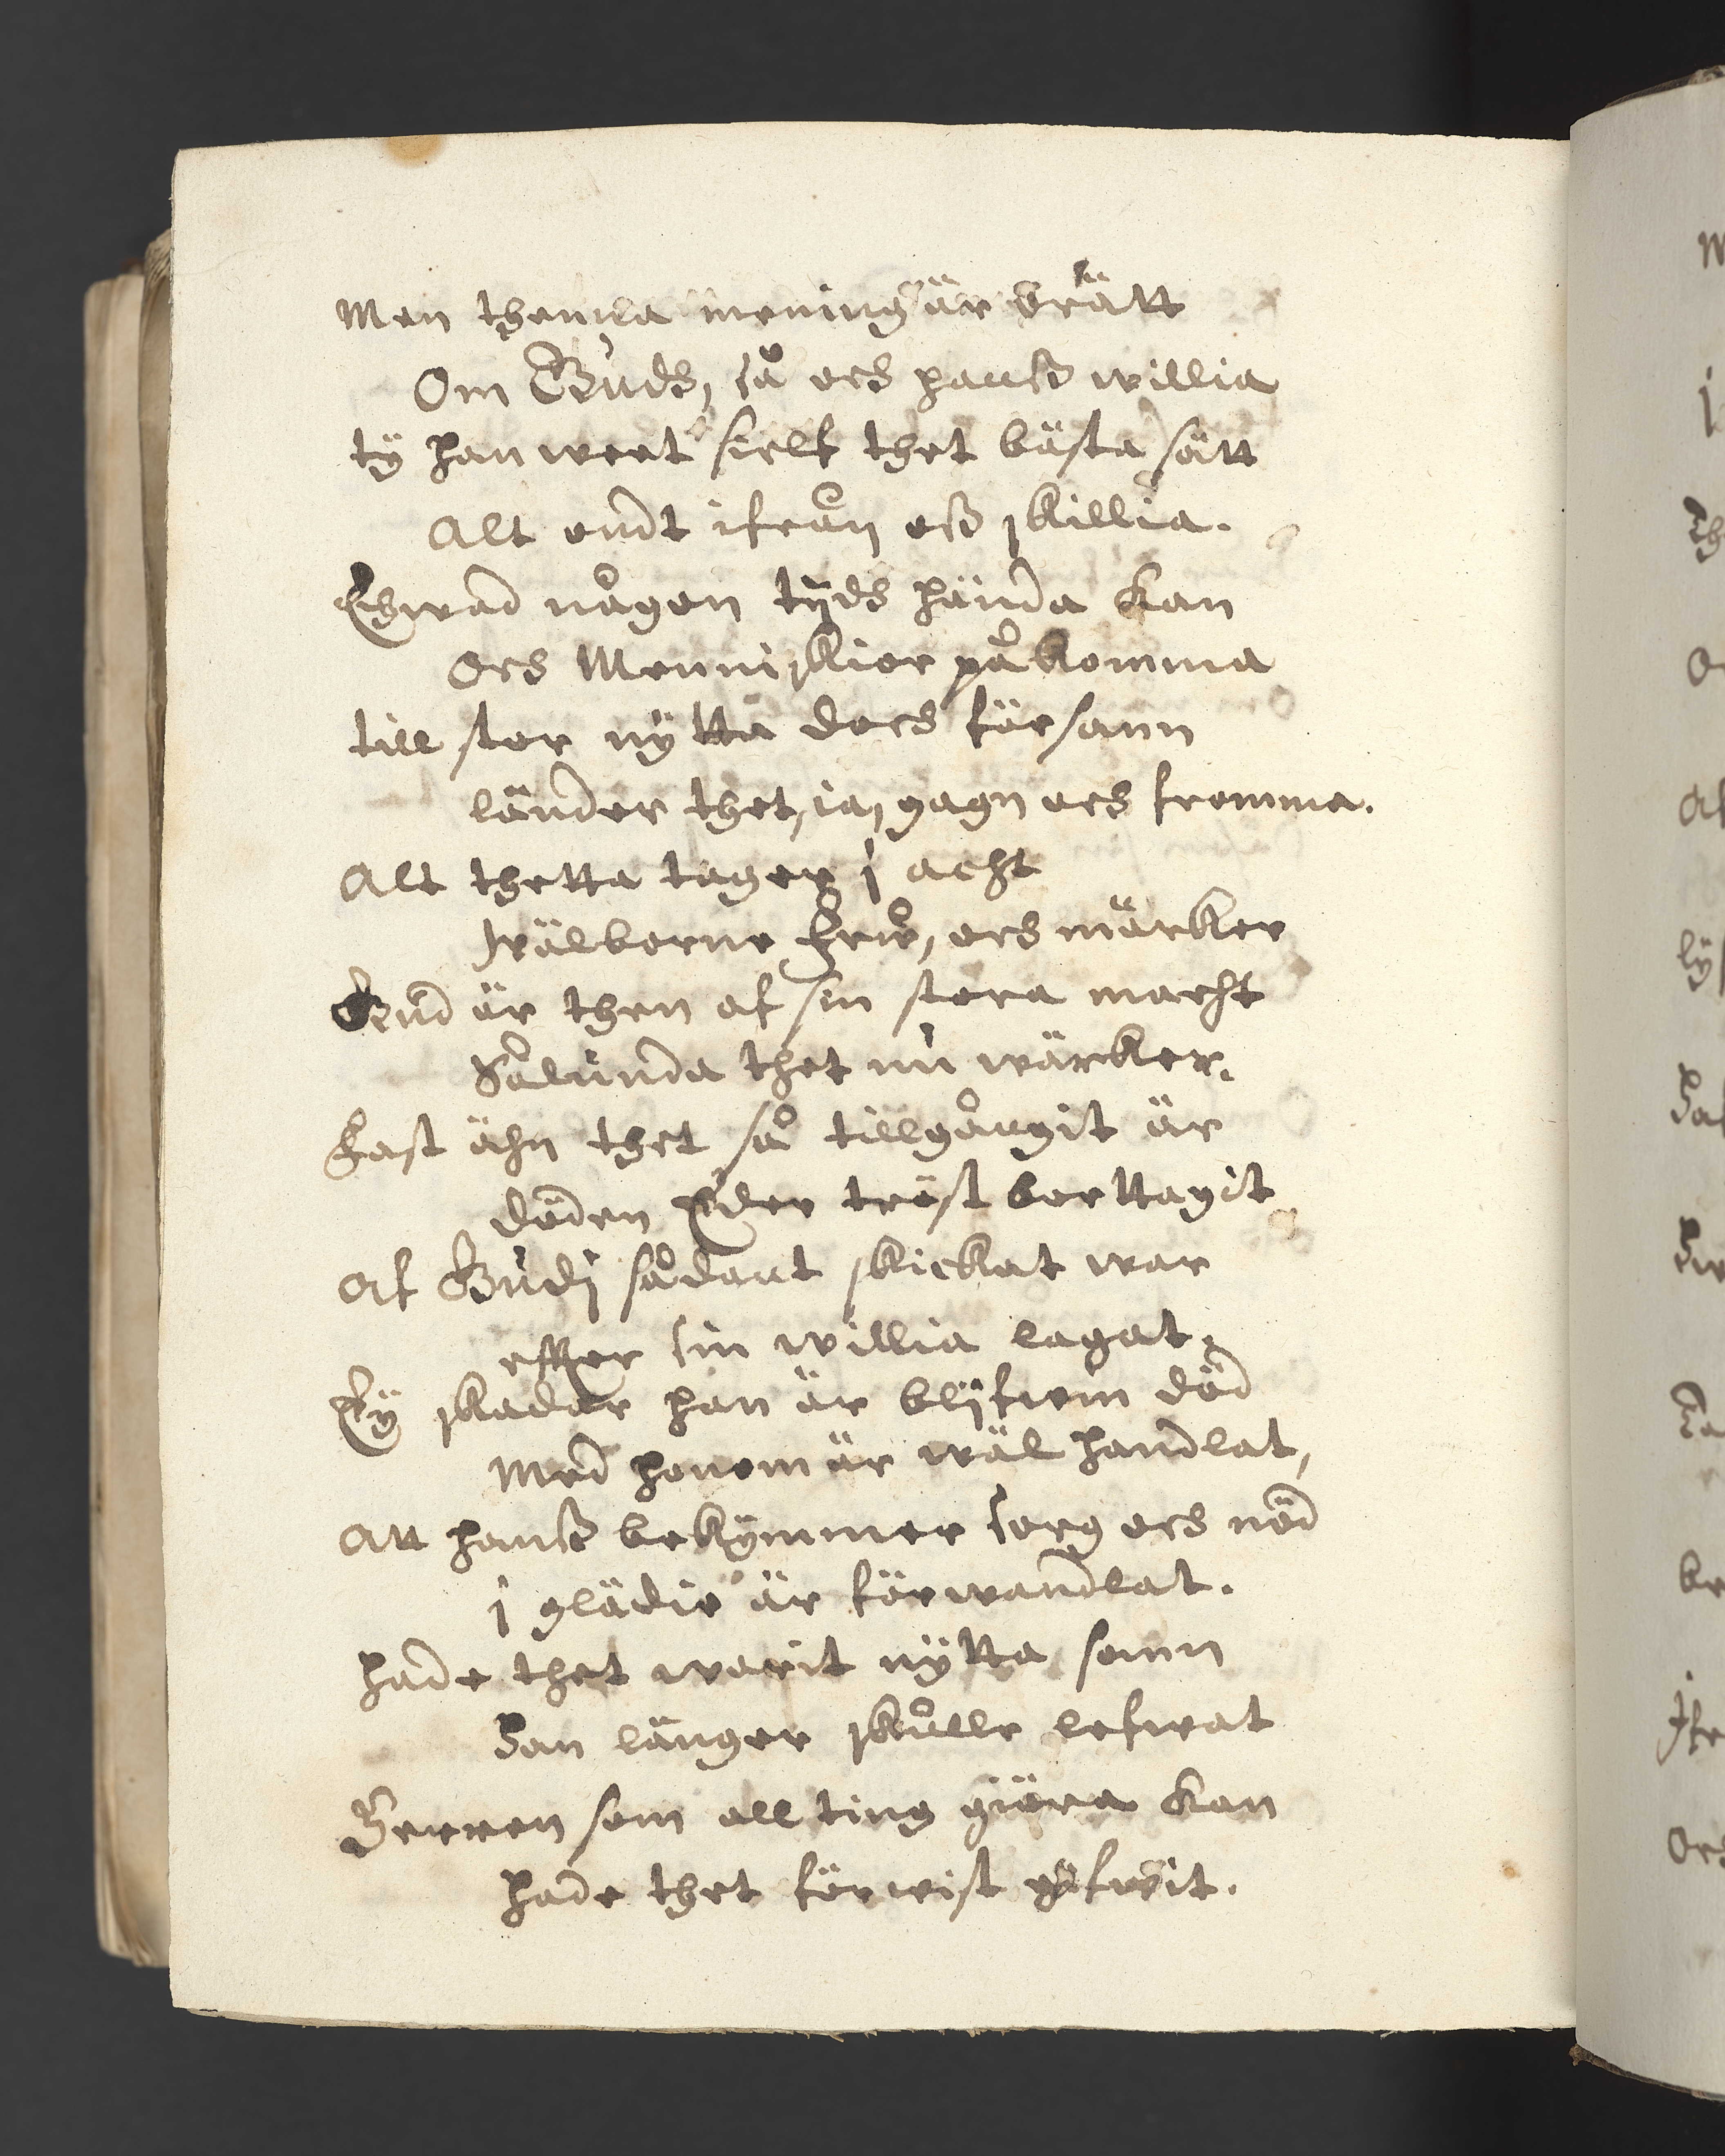 Men thenna mening är orätt
Om Gudh, så och hanß willia
ty han weet sielf thet bästa sätt
Alt ondt ifrån oß skillia.
Ehwad någon tijdh hända kan
och Menniskior påkomma
till stor nytta doch försann
länder thet, ia, gagn och fromma.
Alt thetta tager i acht
Wälborne Frw, och märker
Gud är then af sin stora macht
Sålunda thet nu wärcker.
Fast ähn thet så tillgångit är
döden Eder tröst borttagit
Af Gudi sådant skickat war
effter sin willia lagat.
Ey skadar han är blifwin död
Med honom är wäl handlat,
Att hanß bekymmer sorg och nöd
i glädie är förwandlat.
hade thet warit nytta somn
Han länger skulle lefwat
Herren som all ting giöra kan
hade thet förwist gifwit.